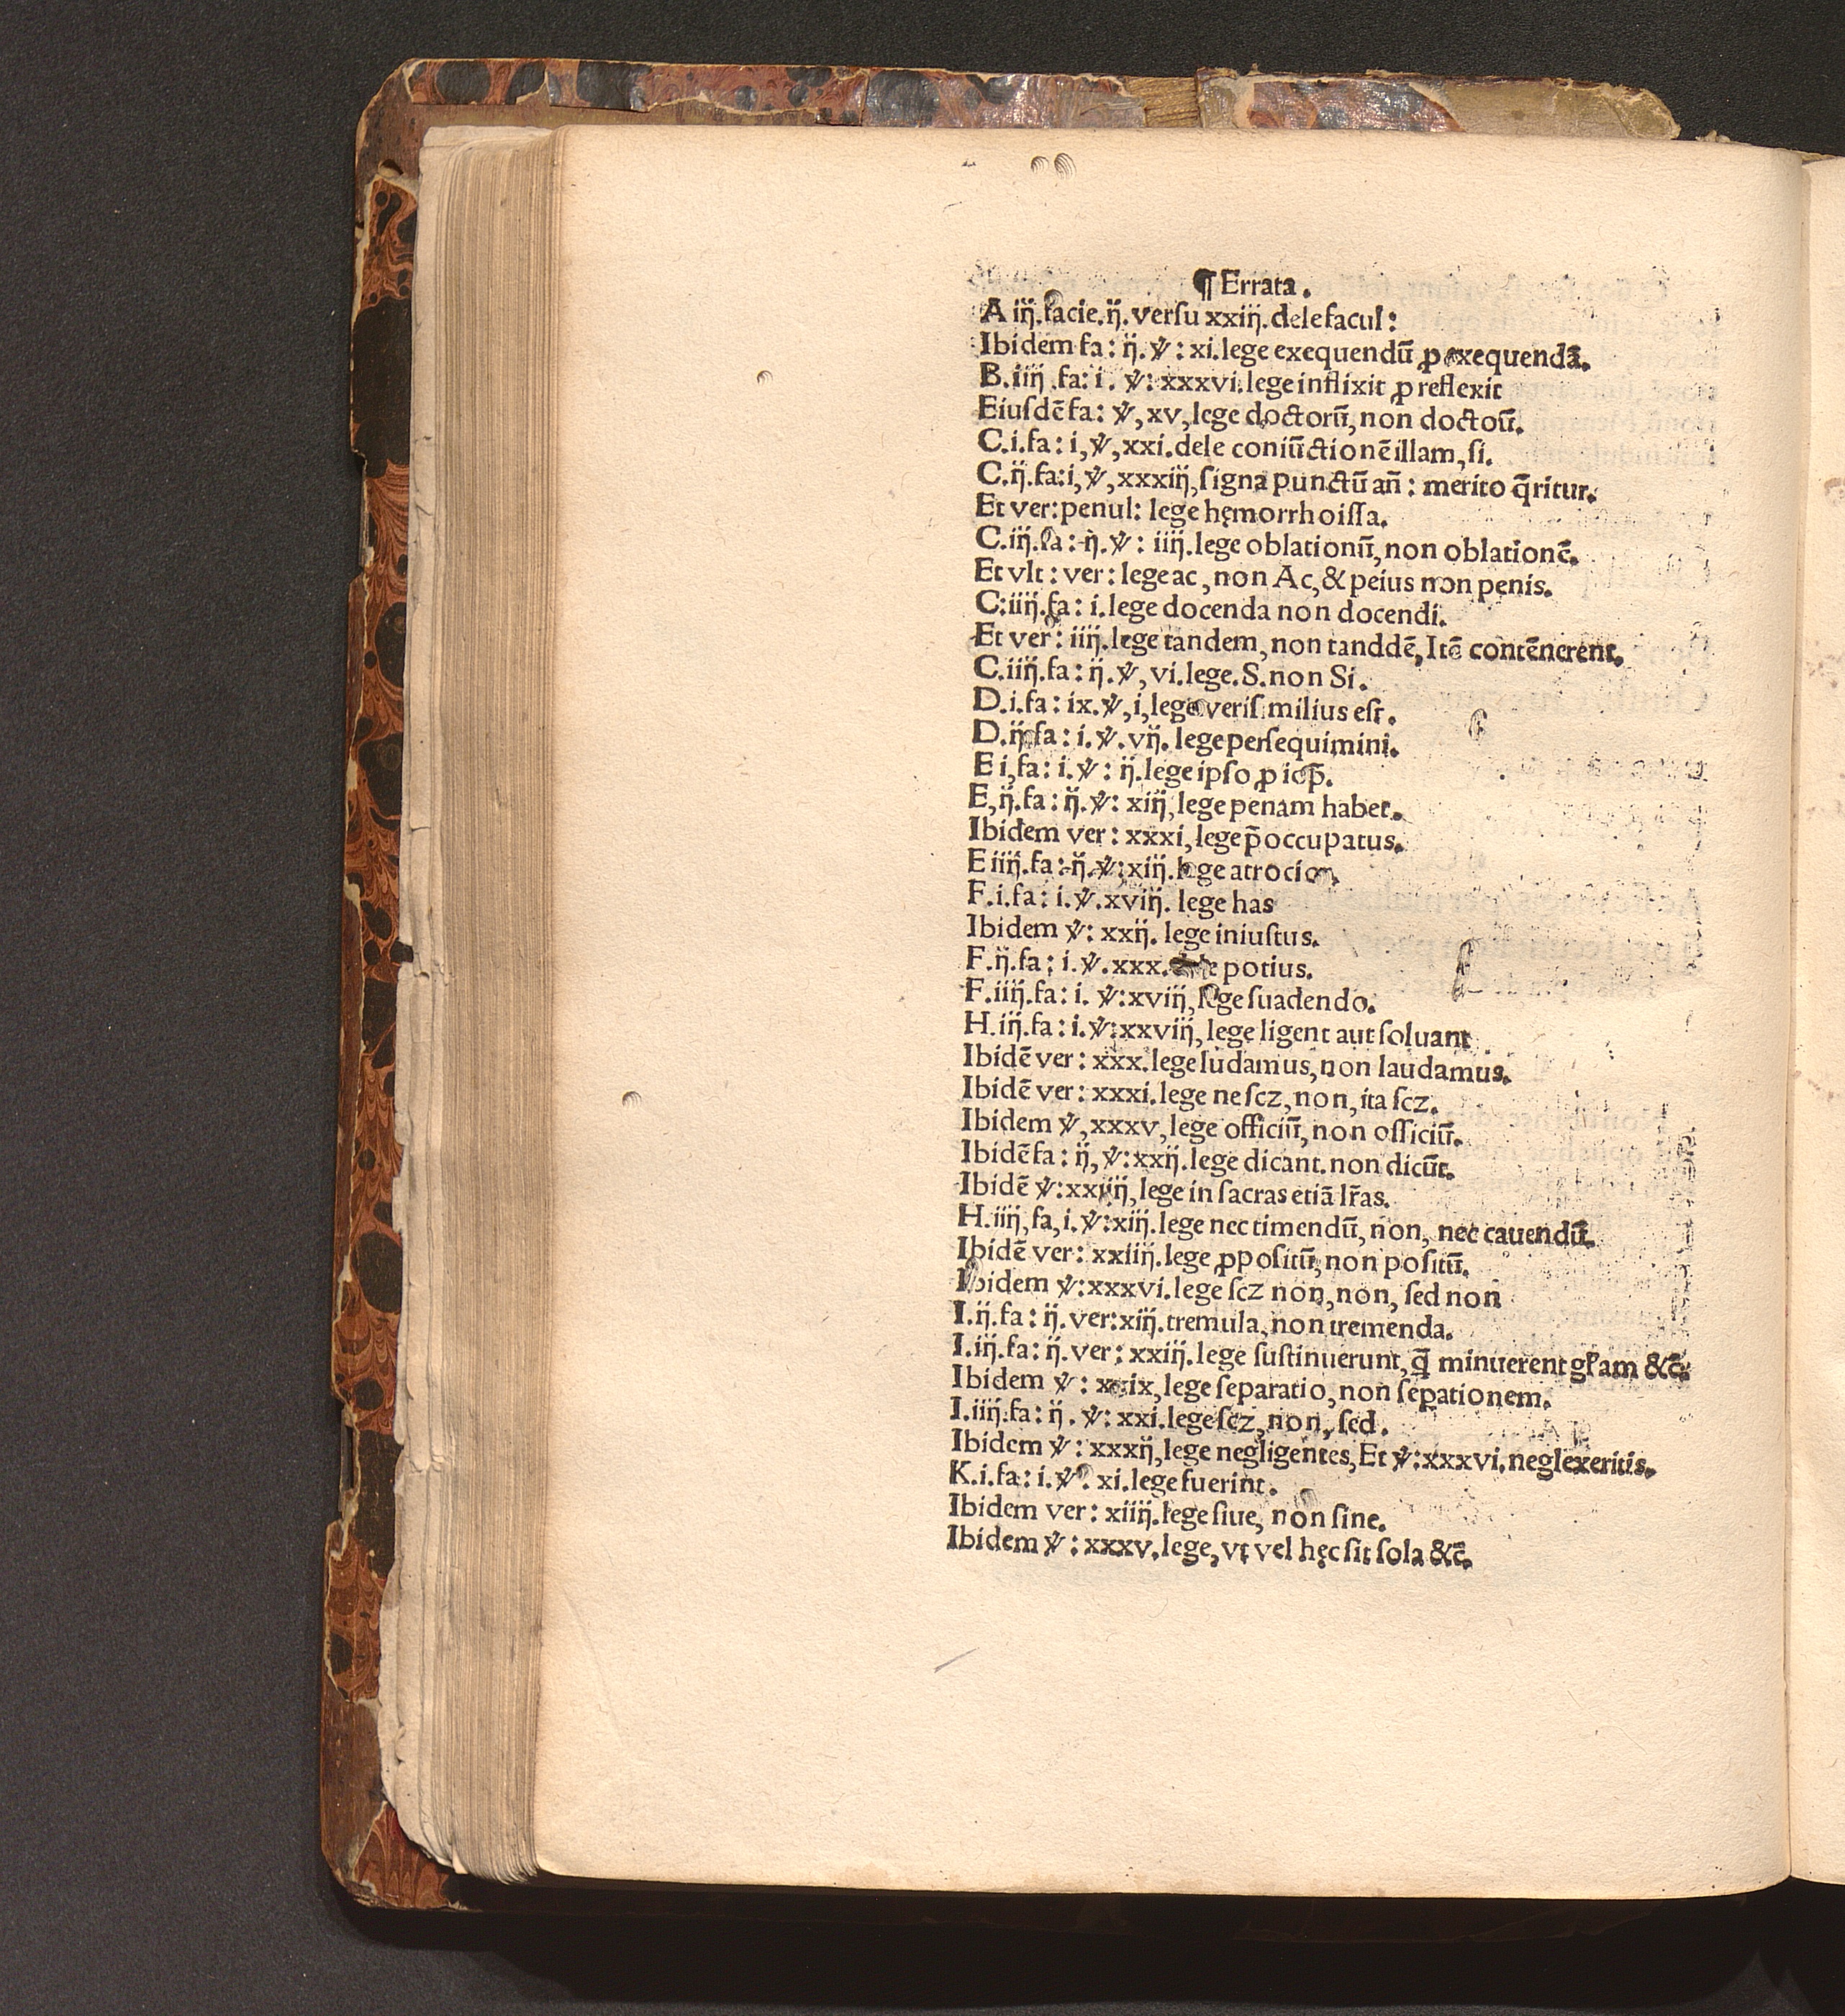 ¶ Errata.
A iij. facie. ij. verſu xxiij. dele facul:
Ibidem fa: ij. ℣: xi. lege exequendū ꝓ exequendā.
B. iiij. fa: i. ℣: xxxvi. lege inflixit ꝓ reflexit
Eiuſdē fa: ℣, xv, lege doctorū, non doctoū.
C. i. fa: i, ℣, xxi. dele coniūctionē illam, ſi.
C. ij. fa: i, ℣, xxxiij, ſigna punctū an̄: merito q̄ritur.
Et ver: penul: lege hęmorrhoiſſa.
C. iij. fa: ij. ℣: iiij. lege oblationū, non oblationē.
Et vlt: ver: lege ac, non Ac, & peius non penis.
C: iiij. fa: i. lege docenda non docendi.
Et ver: iiij. lege tandem, non tanddē, Itē contēnerent.
C. iiij. fa: ij. ℣, vi. lege. S. non Si.
D. i. fa: ix. ℣, i, lege veriſimilius eſt.
D. ij. fa: i. ℣. vij. lege perſequimini.
E i, fa: i. ℣: ij. lege ipſo ꝓ
E, ij. fa: ij. ℣: xiij, lege penam habet.
Ibidem ver: xxxi, lege p̄occupatus.
E iiij. fa: ij. ℣: xij. lege atrocior.
F. i. fa: i. ℣. xviij. lege has
Ibidem ℣: xxij. lege iniuſtus.
F. ij. fa: i. ℣. xxx. potius.
F. iiij. fa: i. ℣: xviij, lege ſuadendo.
H. iij. fa: i. ℣: xxviij, lege ligent aut ſoluant
Ibidē ver: xxx. lege ſudamus, non laudamus.
Ibidē ver: xxxi. lege ne ſcz, non, ita ſcz.
Ibidem ℣, xxxv, lege officiū, non oſſiciū.
Ibidē fa: ij, ℣: xxij. lege dicant. non dicūt.
Ibidē ℣: xxiiij, lege in ſacras etiā lr̄as.
H. iiij, fa, i. ℣: xiij. lege nec timendū, non, nec cauendū.
Ibidē ver: xxiiij. lege ꝓpoſitū, non poſitū.
Ibidem ℣: xxxvi. lege ſcz non, non, ſed non
I. ij. fa: ij. ver: xiij. tremula, non tremenda.
I. iij. fa: ij. ver: xxiij. lege ſuſtinuerunt, q̄ minuerent gl̄am &c̄.
Ibidem ℣: xxix, lege ſeparatio, non ſeꝑationem.
I. iiij. fa: ij. ℣: xxi. lege ſcz, non, ſed.
Ibidem ℣: xxxij, lege negligentes, Et ℣: xxxvi. neglexeritis.
K. i. fa: i. ℣: xi. lege fuerint.
Ibidem ver: xiiij. lege ſiue, non ſine.
Ibidem ℣: xxxv. lege, vt vel hęc ſit ſola &c̄.